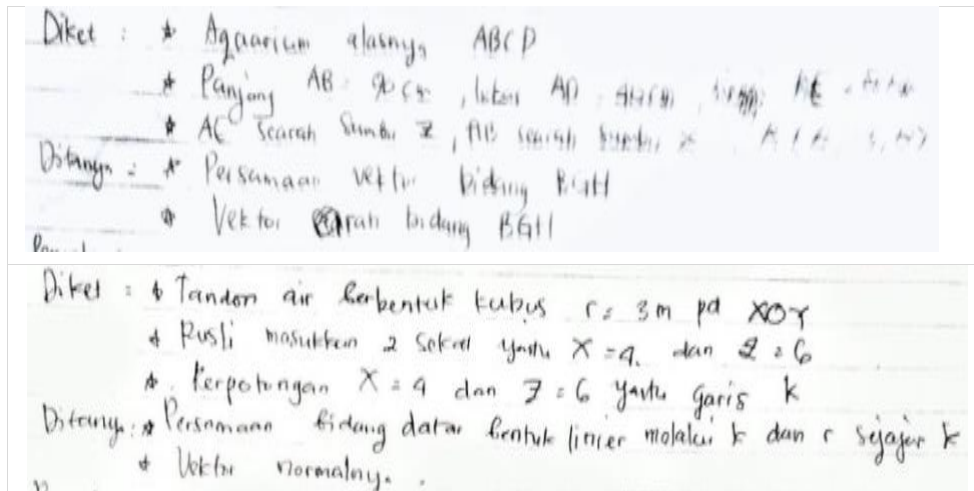 Diket : * Aquarium alasnya ABCD
* Panjang AB 90 cm, lebar AD
* AE searah Sumbu Z, AB searah sumbu X
Ditanya : * Persamaan vektor bidang BGH
* Vektor arah bidang BGH
Diket : * Tandon air berbentuk kubus r = 3 m pd XOY
* Rusli masukkan 2 sekat yaitu X = 4. dan Z = 6
* Perpotongan X = 4 dan Z = 6 yaitu garis k
Ditanya : * Persamaan bidang datar bentuk linier melalui k dan r sejajar k
* Vektor normalnya.